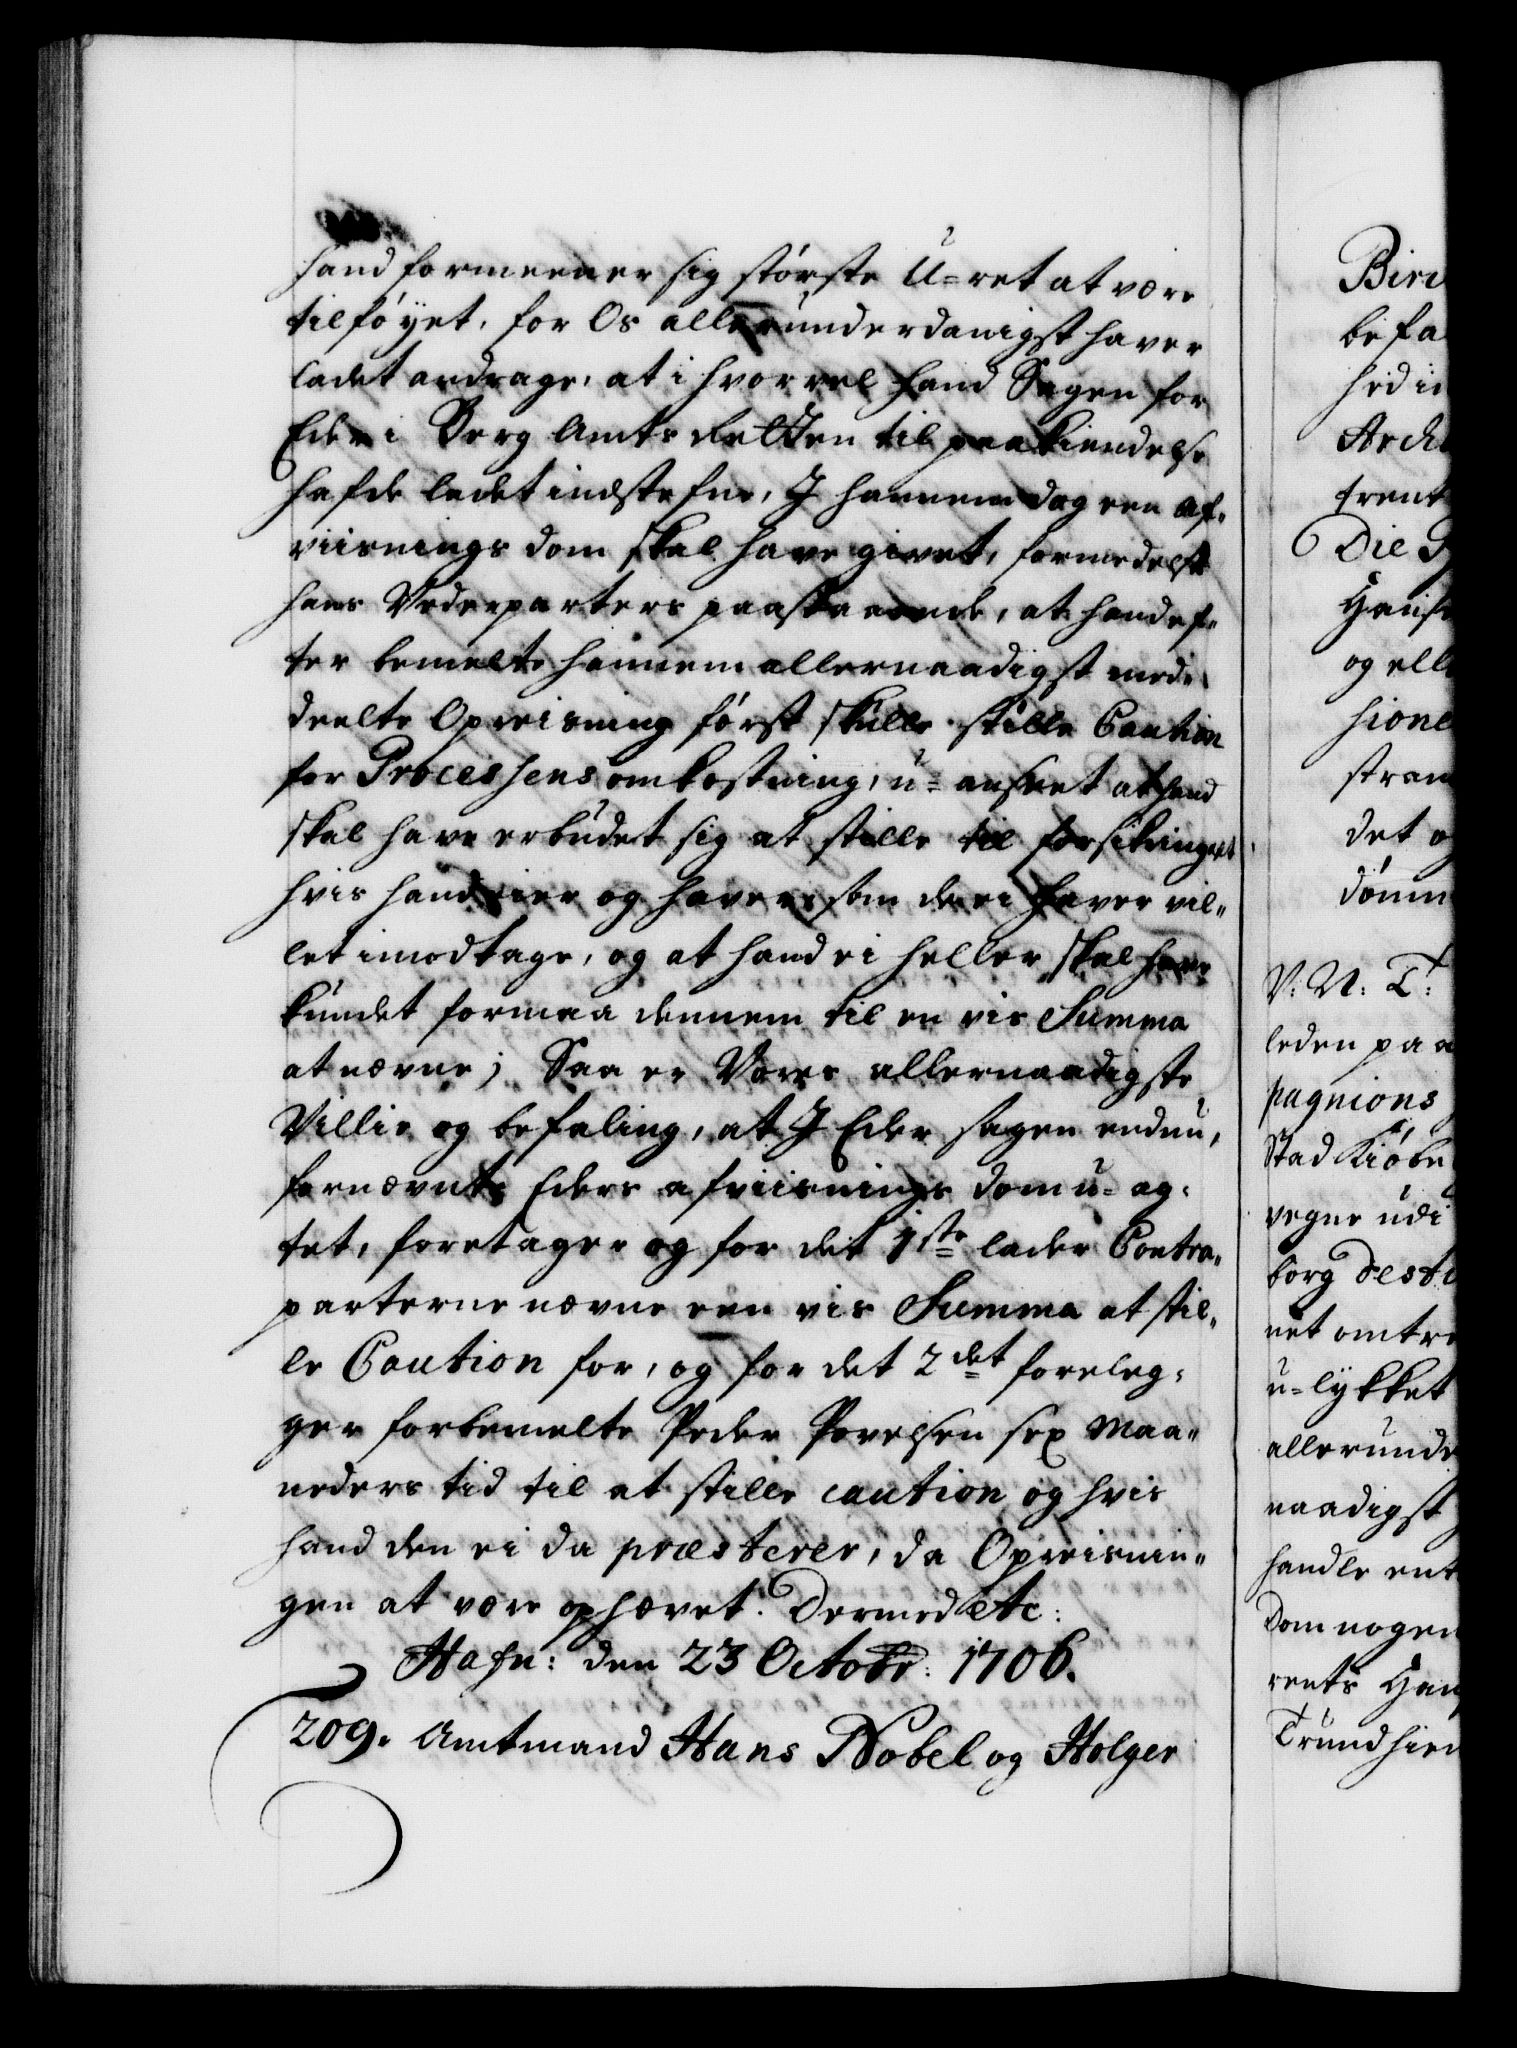 hand formeener sig største U-ret at være
tilføyet, for Os allerunderdanigst haver
ladet andrage, at i hvorvel hand Sagen for
Eder i Berg Amts Retten til paakiendelse
hafde ladet indstefne, I hannem dog een af-
viisnings dom skal have givet, formedelst
hans Vederparters paastaaende, at hand ef-
ter bemelte hannem allernaadigst med-
deelte Opreisning først skulle stille Caution
for Processens omkostning, u-anseet at hand
skal have erbudet sig at stille til forsikring alt
hvis hand eier og haver, som de ei haver vil-
let imodtage, og at hand ei heller skal have
kundet formaa dennem til en vis Summa
at nævne; Saa er Vores allernaadigste
Villie og befaling, at I Eder sagen endnu,
fornævnte Eders afviisnings dom u-ag-
tet, foretager og for det 1ste lader Contra-
parterne nævne een vis Summa at stil-
le Caution for, og for det 2det foreleg-
ger forbemelte Peder Povelsen sex Maa-
neders tid til at stille caution og hvis
hand den ei da præsterer, da Opreisnin-
gen at være ophævet. Dermed etc:
Hafn: den 23 Octobr: 1706.
209. Amtmand Hans Nobel og Holger
befa
Archi
trent
Die
og ell
hione
stran
det o
V: N: T:
leden paa
pagnions
Stad Kiøbe
vegne udi
borg desti
net omtre
u-lykket
allerunde
naadigst
handle ent
Dom nogen
rents Han
Trundhien